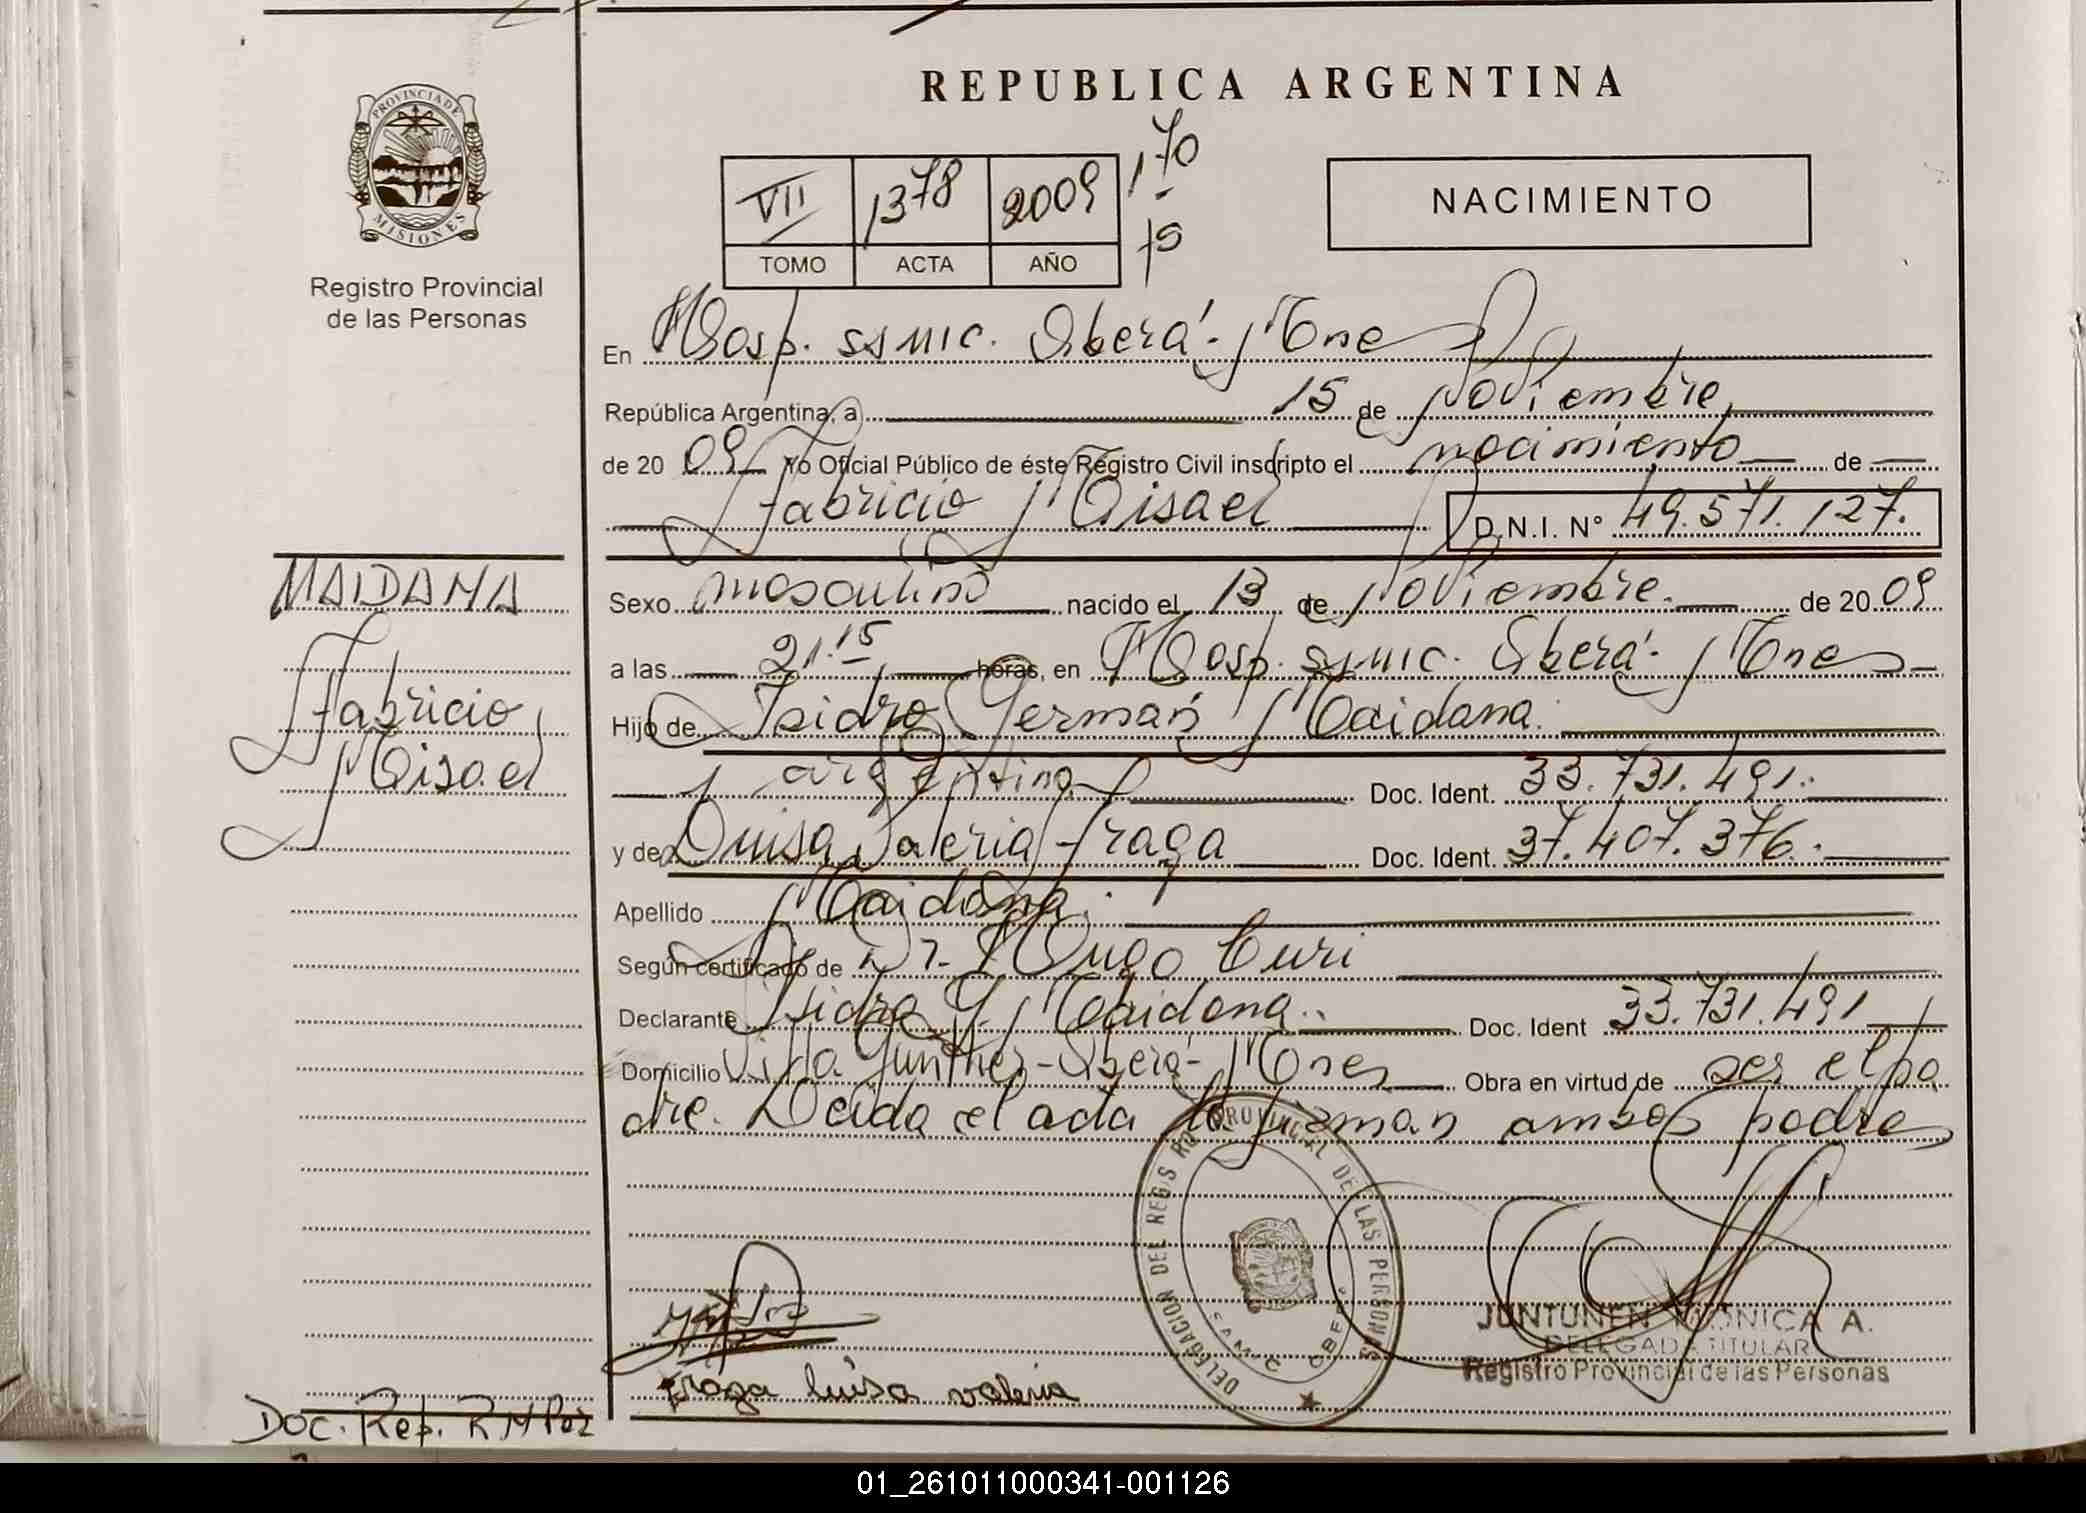 REPUBLICA ARGENTINA
PROVINCIA DE
MISIONES
Registro Provincial
de las Personas
VII 1378 2009 170
TOMO ACTA AÑO
NACIMIENTO
En Hosp. ssmic. Oberá- Mnes
República Argentina, a 15 de Noviembre
de 20 09 Yo Oficial Público de éste Registro Civil inscripto el nacimiento de
Fabricio Misael D.N.I. N° 49.571.127.
MAIDANA
Fabricio
Misael
Sexo masculino nacido el 13 de Noviembre. de 20 09
a las 21.15 horas, en Hosp. ssmic. Oberá- Mnes
Hijo de Isidro Germán Maidana.
argentino Doc. Ident. 33.731.491.
y de Luisa Valeria Fraga Doc. Ident. 37.407.376.
Apellido Maidana.
Según certificado de Dr. Hugo Curi
Declarante Isidro G. Maidana.. Doc. Ident 33.731.491
Domicilio Villa Gunther-Oberá- Mnes Obra en virtud de ser el pa
dre. Leida el acta la firman ambos padres
DELEGACION DEL REGISRO PROVINCIAL DE LAS PERSONAS
SAMIC OBERA
JUNTUNEN MONICA A.
DELEGADA TITULAR
Registro Provincial de las Personas
Fraga luisa valeria
Doc. Rep. R N Poz
01_261011000341-001126